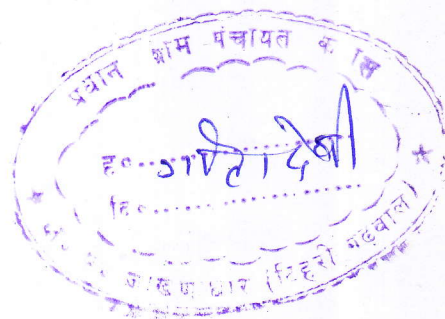 प्रधान ग्राम पंचायत
ह०.......... देवी
दि०..........
जाखणीधार (टिहरी गढवाल)